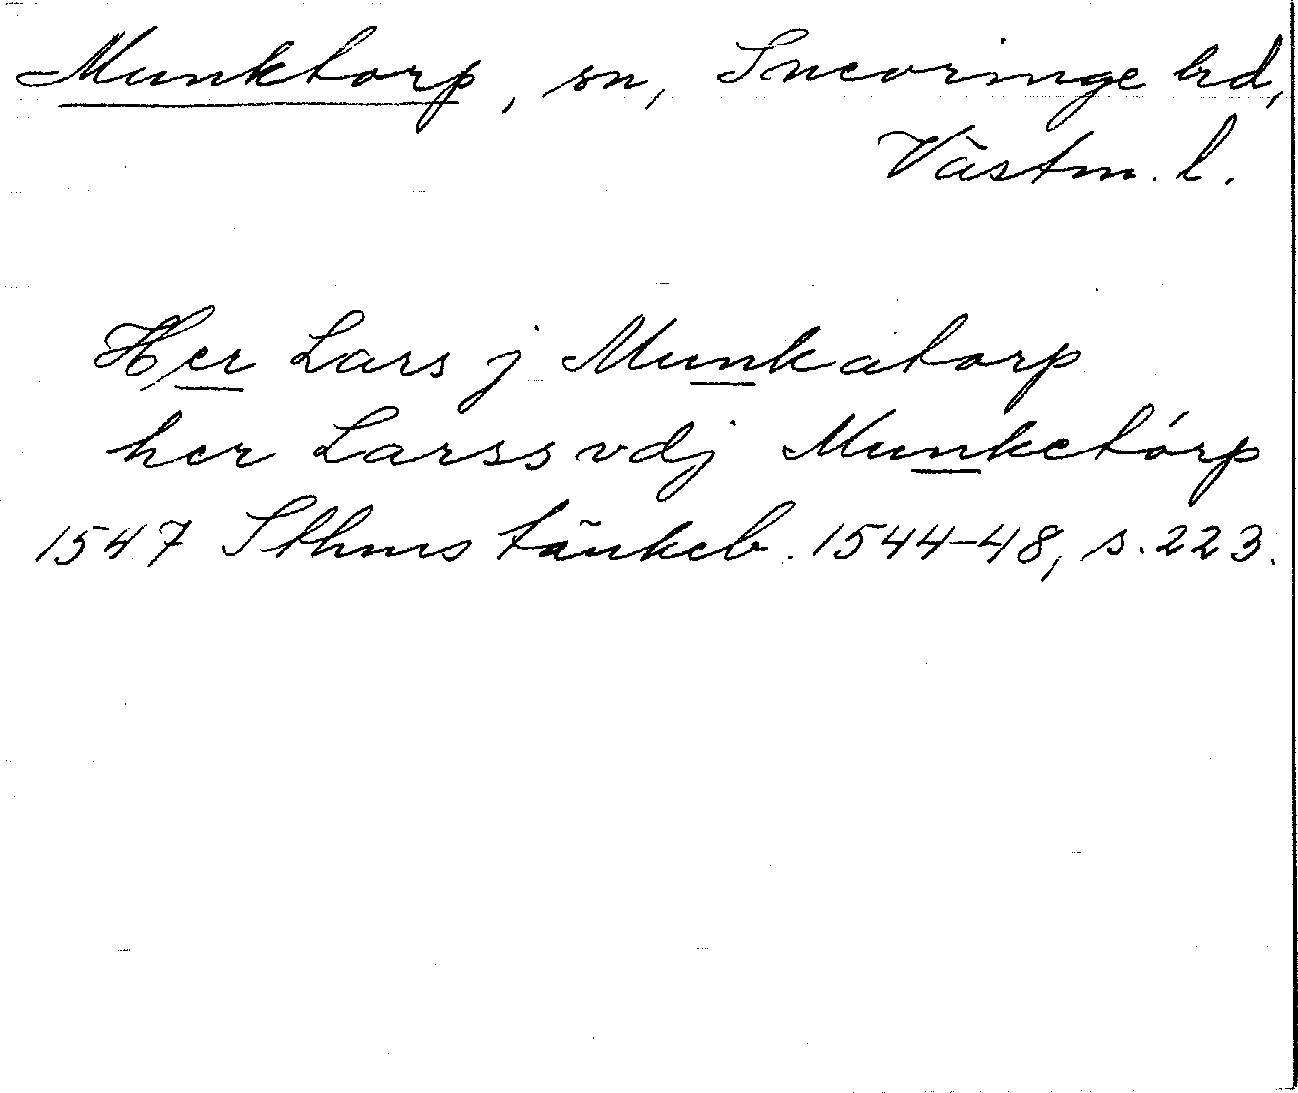 Munktorp, sn, Snevringe hd,
Västm. l.
Her Lars j Munkatorp
her Larss vdj Munketórp
1547 Sthms tänkeb. 1544-48, s. 223.